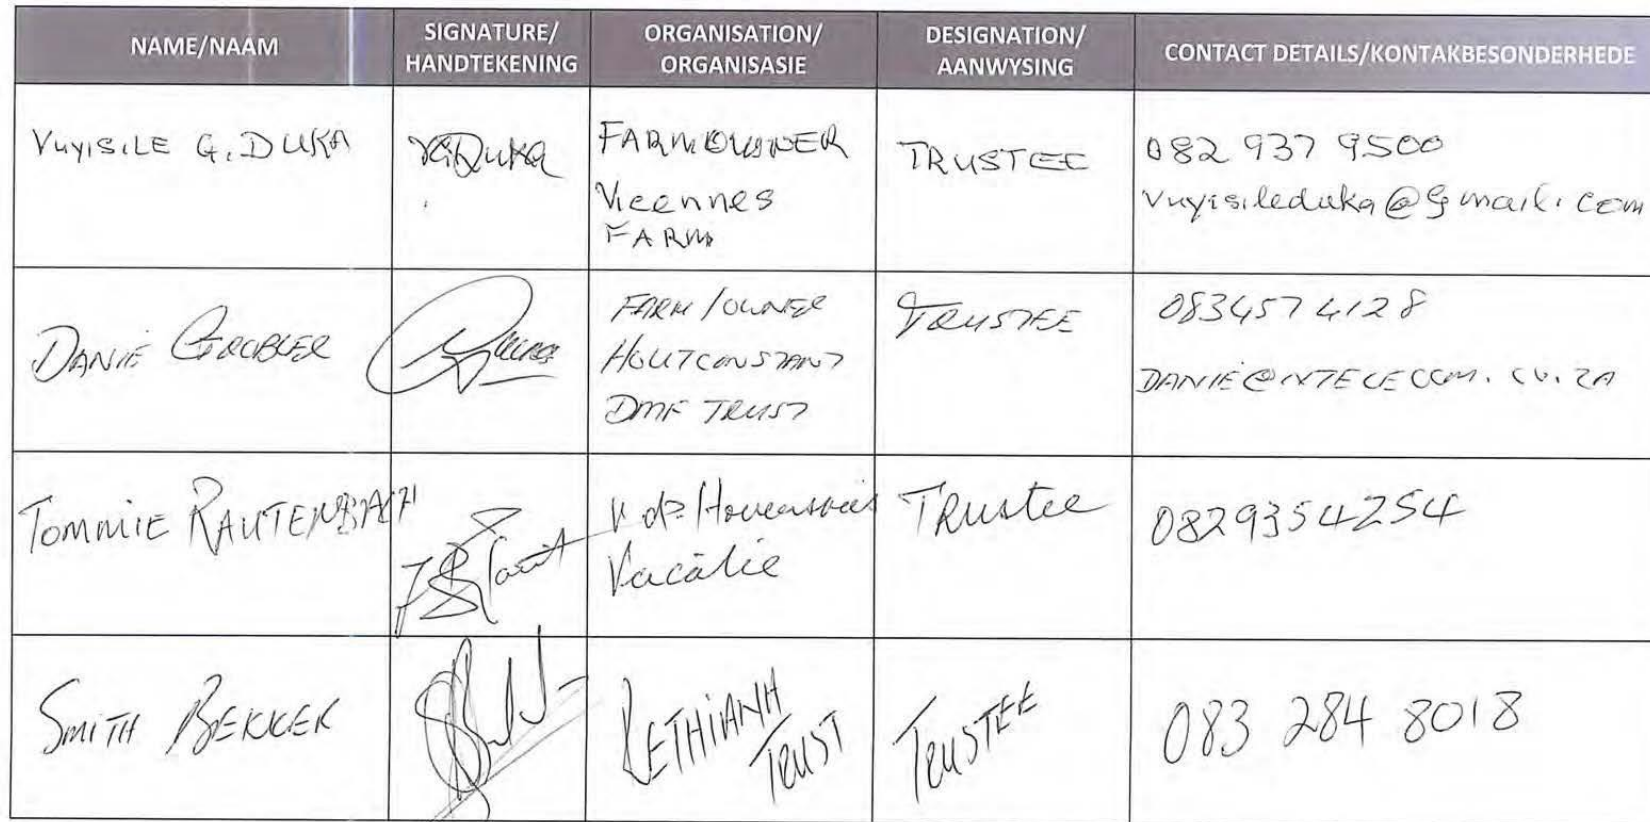 NAME/NAAM
SIGNATURE/
HANDTEKENING
ORGANISATION/
ORGANISASIE
DESIGNATION/
AANWYSING
CONTACT DETAILS/KONTAKBESONDERHEDE
VUYISILE G. DUKA
VGDuka
FARMOWNER
Vicennes
FARM
TRUSTEE
082 937 9500
vuyisileduka@gmail.com
DANIE GROBLER
FARM/OWNER
HOUTCONSTANT
DMF TRUST
TRUSTEE
0834574128
DANIE@NTELECOM.CO.ZA
TOMMIE RAUTENBACH
Trustee
0829354254
SMITH BEKKER
TRUST
TRUSTEE
083 284 8018